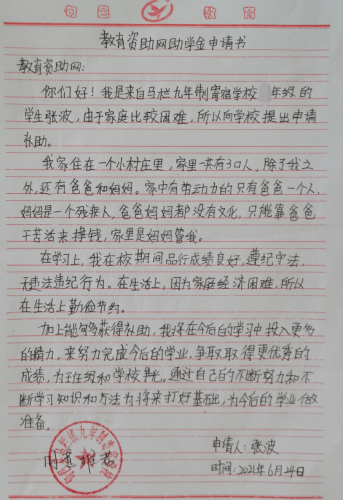 旬邑 教育
教育资助网助学金申请书
教育资助网:
你们好! 我是来自马栏九年制寄宿学校 年级的
学生张波,由于家庭比较困难,所以向学校提出申请
补助。
我家住在一个小村庄里,家里一共有3口人,除了我之
外,还有爸爸和妈妈。家中有劳动力的只有爸爸一个人,
妈妈是一个残疾人,爸爸妈妈都没有文化,只能靠爸爸
干苦活来挣钱,家里是妈妈管我。
在学习上,我在校期间品行成绩良好,遵纪守法,
无违法违纪行为。在生活上,因为家庭经济困难,所以
在生活上勤俭节约。
如上能够获得补助,我将在今后的学习中投入更多
的精力。来努力完成今后的学业,争取取得更优秀的
成绩,为班级和学校争光。通过自己的不断努力和不
断学习知识和方法为将来打好基础,为今后的学业做
准备。
申请人:张波
时间:2021年6月24日